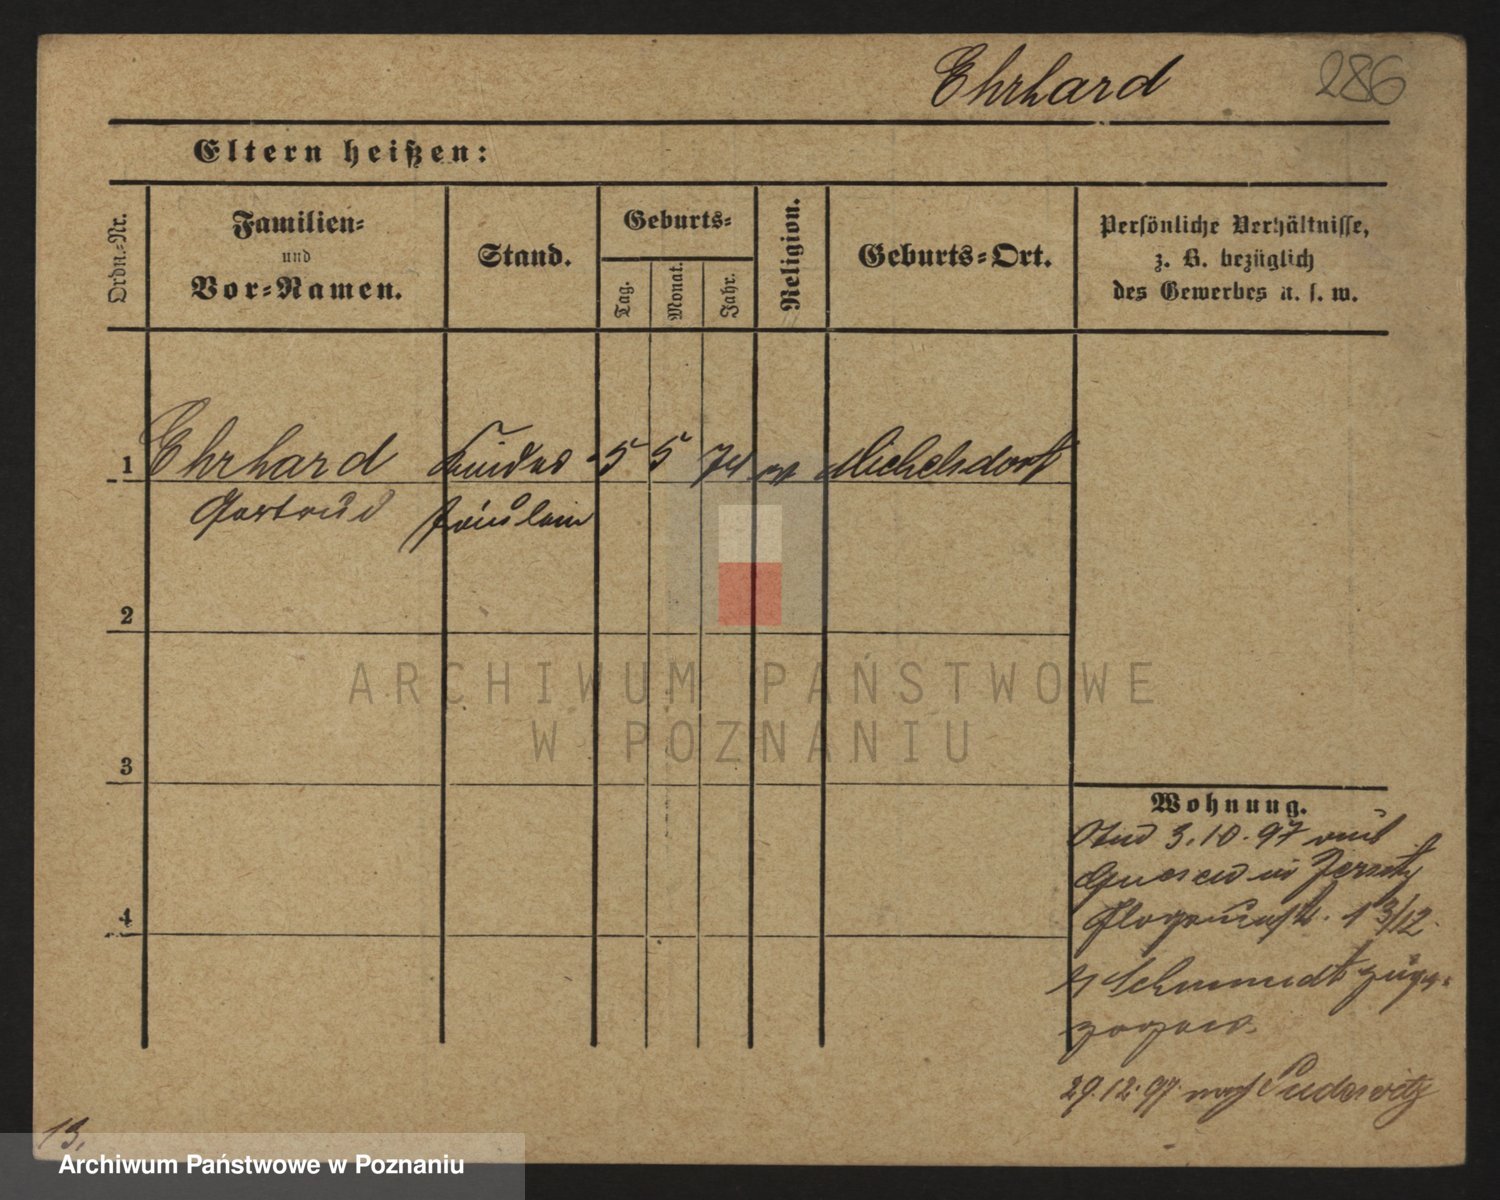 Ehrhard 286
Eltern heißen:
Ordn.-Nr.
Familien-
und
Vor-Namen.
Stand.
Geburts-
Tag.
Monat.
Jahr.
Religion.
Geburts-Ort.
Persönliche Verhältnisse,
z. B. bezüglich
des Gewerbes u. s. w.
1 Ehrhard Kinder- 5 5 74 Michelsdorf
Gertrud fräulein
2
3
4
Wohnung.
3.10.97 aus
Gnesen in Jersitz
13/12
Schmidt zuge-
zogen.
29.12.97. nach Pudewitz
13.
ARCHIWUM PAŃSTWOWE
W POZNANIU
Archiwum Państwowe w Poznaniu